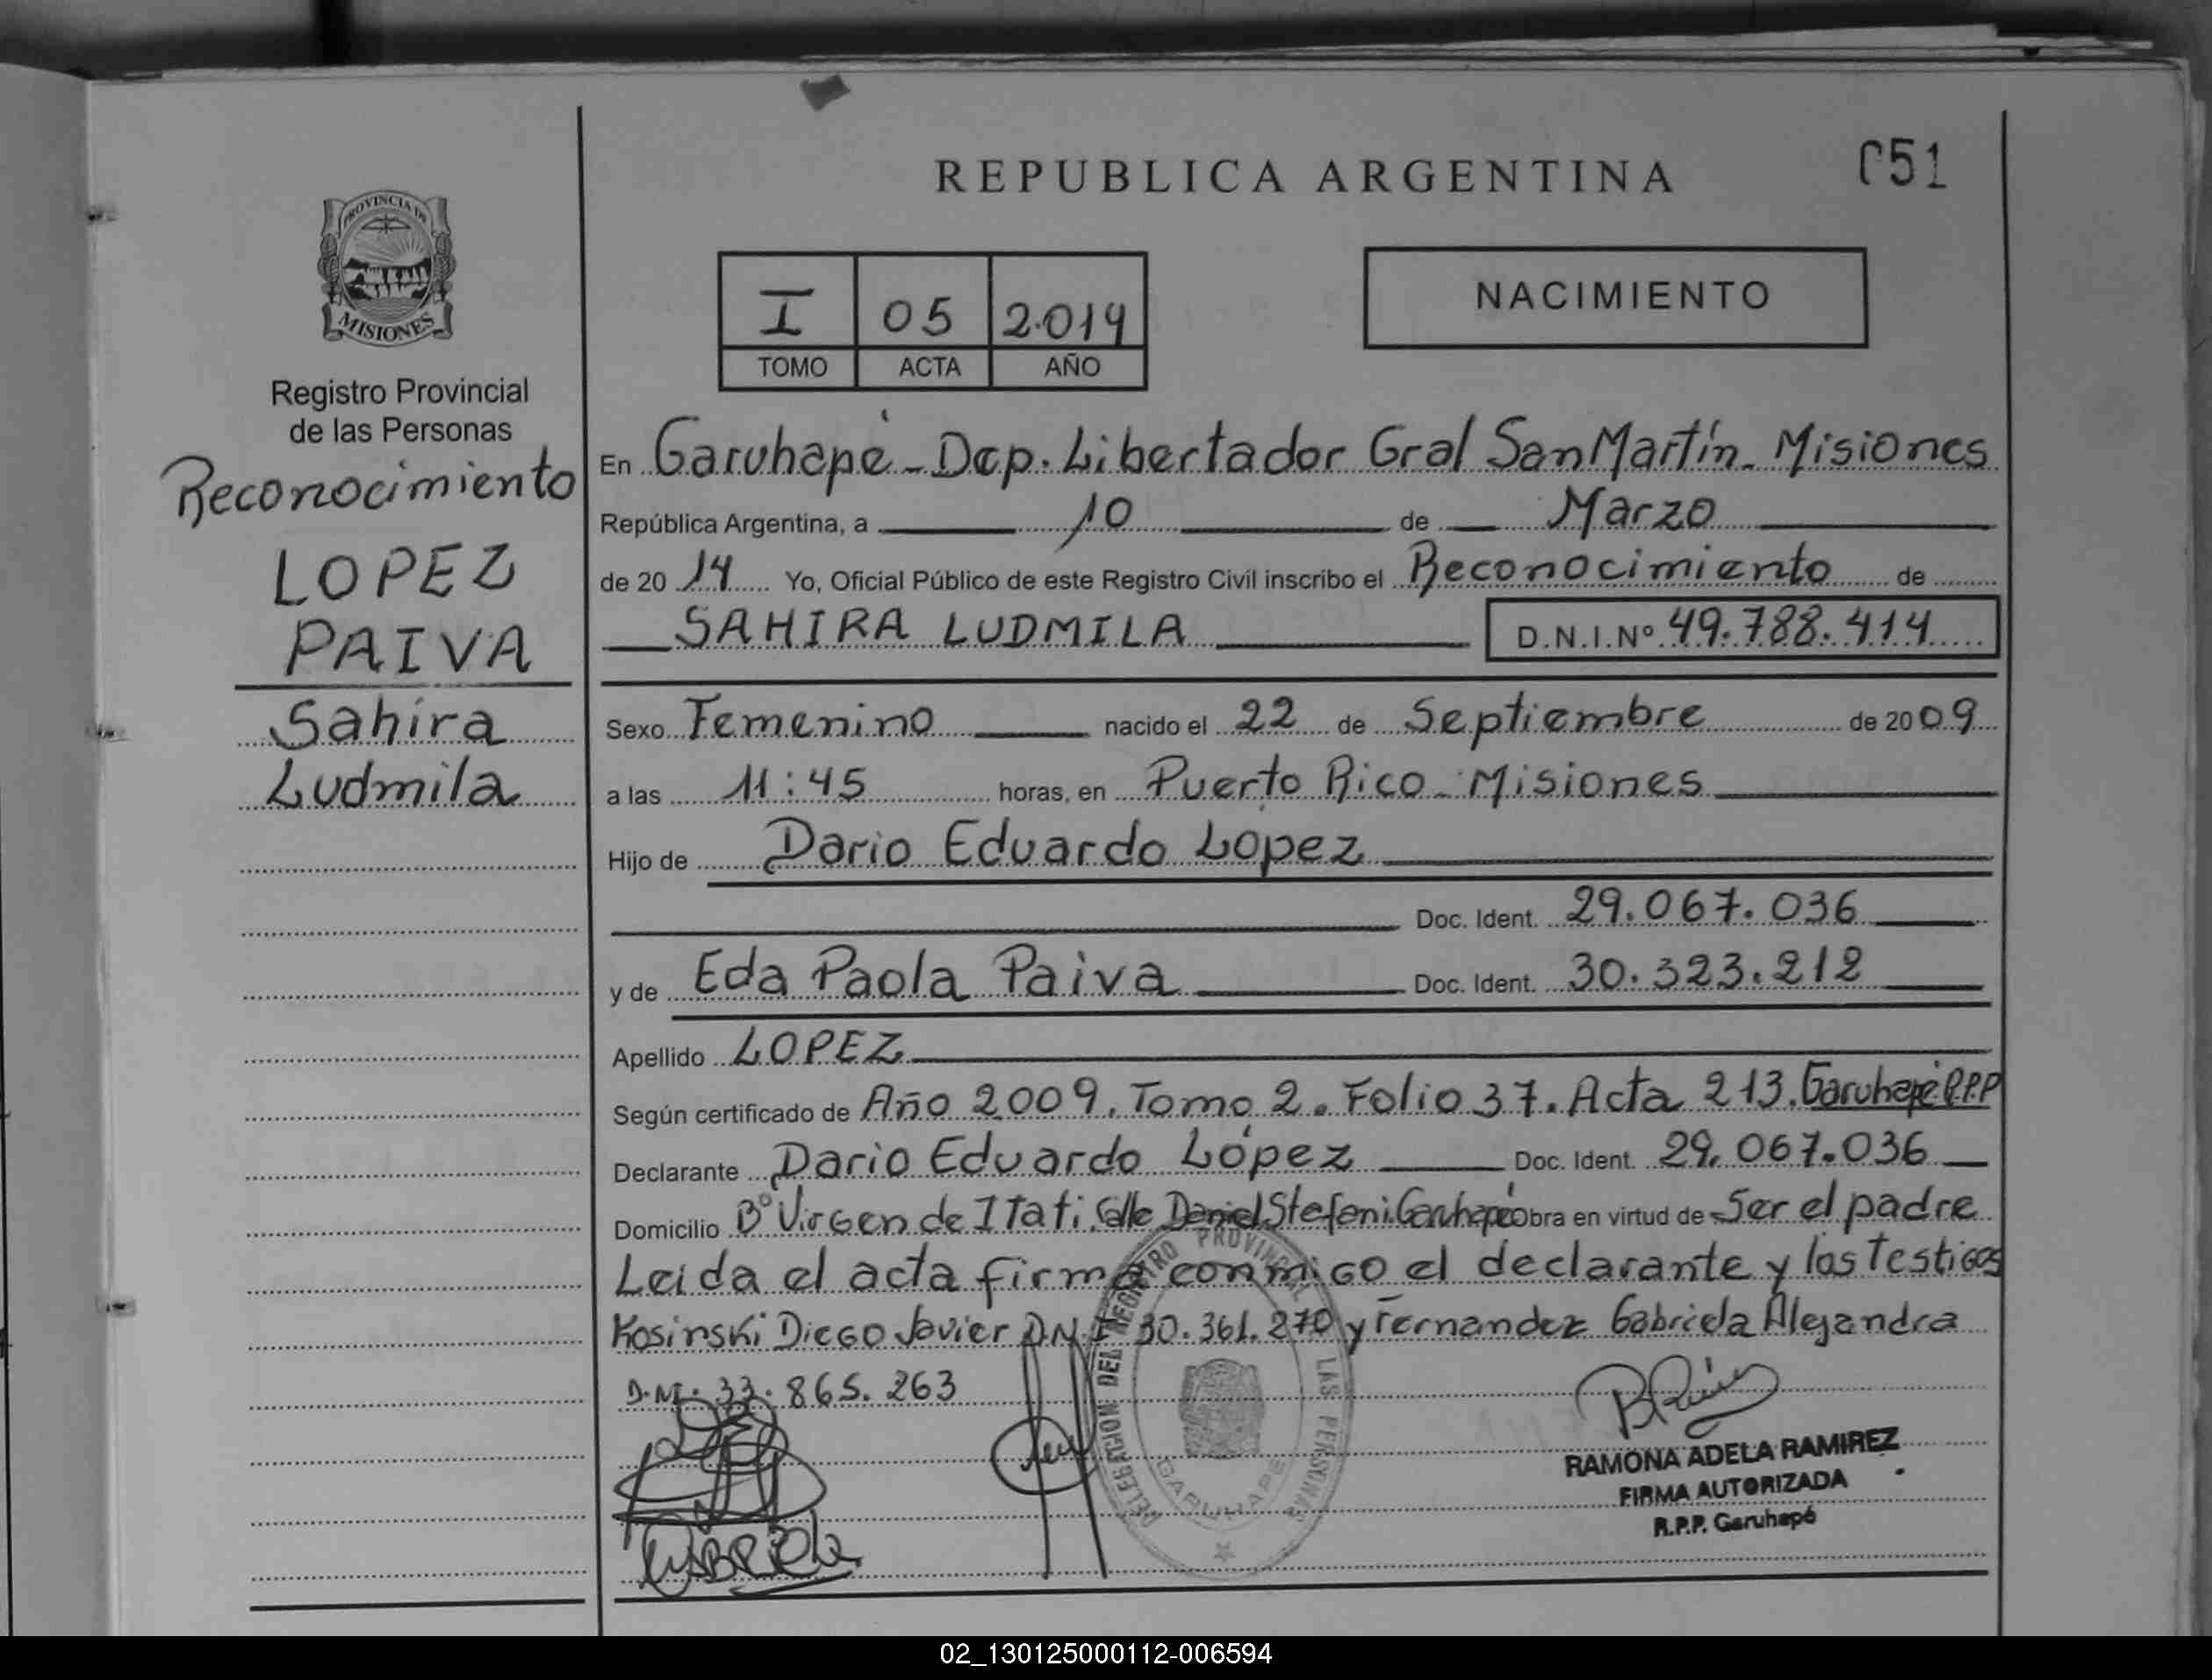 REPUBLICA ARGENTINA
051
PROVINCIA DE
MISIONES
Registro Provincial
de las Personas
Reconocimiento
LOPEZ
PAIVA
Sahira
Ludmila
I 05 2.014
TOMO ACTA AÑO
NACIMIENTO
En Garuhapé - Dep. Libertador Gral San Martín - Misiones
República Argentina, a 10 de Marzo
de 2014 Yo, Oficial Público de este Registro Civil inscribo el Reconocimiento de
SAHIRA LUDMILA D.N.I.Nº 49.788.414
Sexo Femenino nacido el 22 de Septiembre de 2009
a las 11:45 horas, en Puerto Rico - Misiones
Hijo de Dario Eduardo Lopez
Doc. Ident. 29.067.036
y de Eda Paola Paiva Doc. Ident. 30.323.212
Apellido LOPEZ
Según certificado de Año 2009. Tomo 2. Folio 37. Acta 213. Garuhapé R.P.P
Declarante Dario Eduardo López Doc. Ident. 29.067.036
Domicilio Bº Virgen de Itati. Calle Daniel Stefani. Garuhapé Obra en virtud de Ser el padre
Leida el acta firma conmigo el declarante y los Testigos
Kosinski Diego Javier D.N.I. 30.361.270 y Fernandez Gabriela Alejandra
D.N.I. 33.865.263
DELEGACION DEL REGISTRO PROVINCIAL DE LAS PERSONAS
GARUHAPE
RAMONA ADELA RAMIREZ
FIRMA AUTORIZADA
R.P.P. Garuhapé
02_130125000112-006594